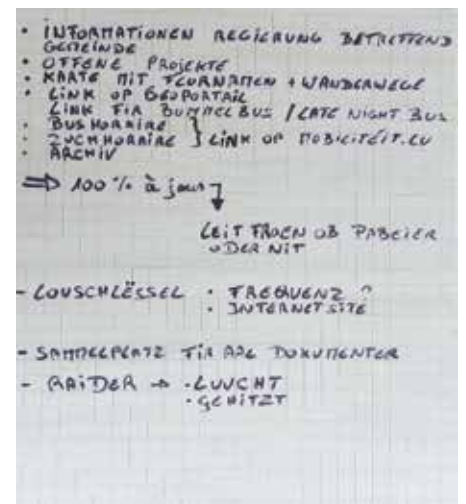 • INFORMATIONEN REGIERUNG BETREFFEND
GEMEINDE
• OFFENE PROJEKTE
• KARTE MIT FLURNAMEN + WANDERWEGE
• LINK OP GEOPORTAIL
LINK FIR BUMMELBUS / LATE NIGHT BUS
• BUSHORAIRE
• ZUCHHORAIRE } LINK OP MOBILITÉIT.LU
• ARCHIV
⇒ 100 % à jour
LEIT FROEN OB PABEIER
ODER NIT
- LOUSCHLËSSEL • FREQUENZ ?
• INTERNETSITE
- SAMMELPLATZ FIR DOKUMENTER
- RAIDER → • LUUCHT
• GEHITZT